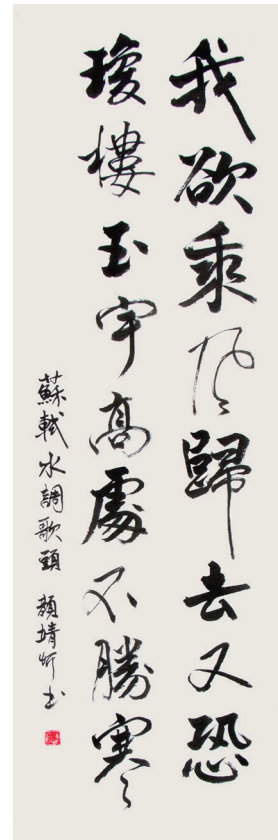 我欲乘风歸去又恐
瓊樓玉宇高處不勝寒
蘇軾水調歌頭 顏婧竹書